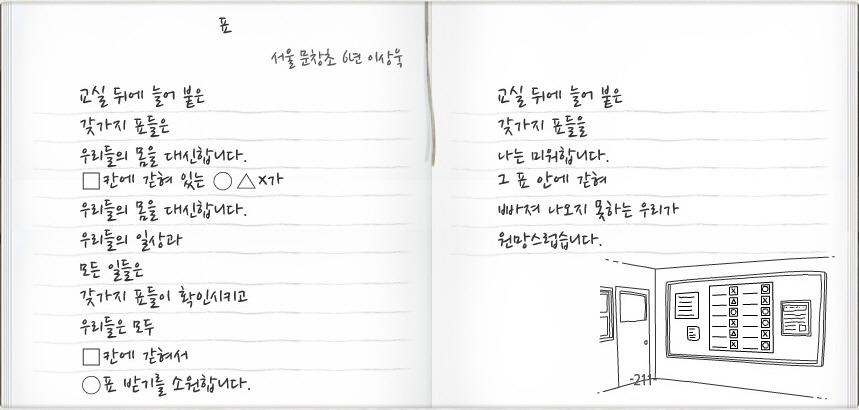 표
서울 문창초 6년 이상욱
교실 뒤에 늘어 붙은
갖가지 표들은
우리들의 몸을 대신합니다.
□칸에 갇혀 있는 ○△×가
우리들의 몸을 대신합니다.
우리들의 일상과
모든 일들은
갖가지 표들이 확인시키고
우리들은 모두
□칸에 갇혀서
○표 받기를 소원합니다.
교실 뒤에 늘어 붙은
갖가지 표들을
나는 미워합니다.
그 표 안에 갇혀
빠져 나오지 못하는 우리가
원망스럽습니다.
-211-